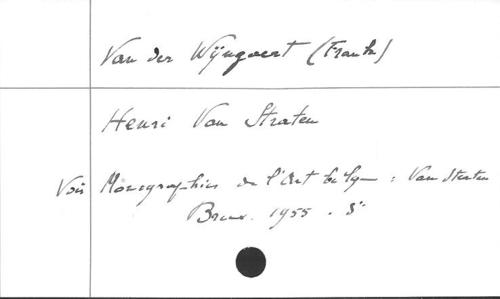 Van der Wijngaert (Frank)
Henri Van Straten
Voir Monographies de l'Art belge : Van Straten
Brux. 1955. 8°